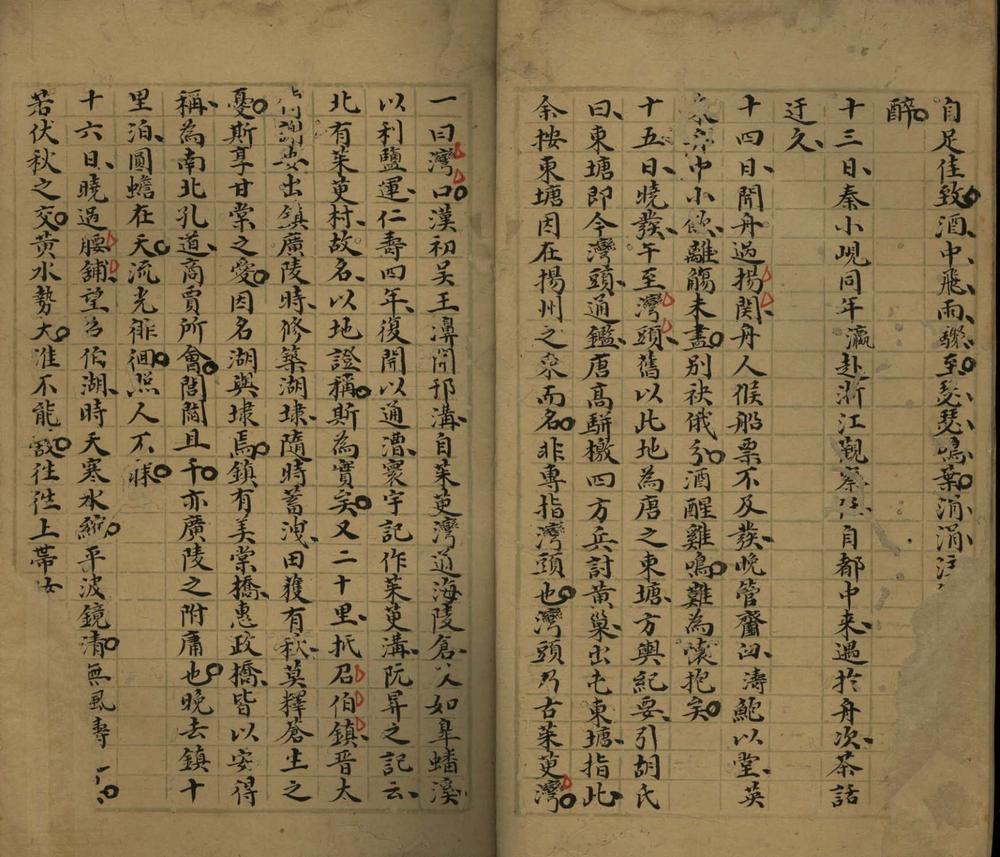 自足佳致酒中飛雨驟至瑟瑟鳴葉涓涓注
醉
十三日秦小峴同年瀛赴浙江觀察任自都中来遇於舟次茶話
迂久
十四日開舟過揚関舟人候船票不及發晚管齋洄濤鮑以堂英
中小飲離觴未盡别袂俄分酒醒雞鳴難為懷抱矣
十五日曉發午至灣頭舊以此地為唐之東塘方輿紀要引胡氏
曰東塘即今灣頭通鑑唐高駢檄四方兵討黃巢出屯東塘指此
余按東塘因在揚州之東而名非專指灣頭也灣頭乃古茱萸灣
一曰灣口漢初吴王濞開邗溝自茱萸灣道海陵倉以入如皐蟠溪
以利鹽運仁壽四年復開以通漕寰宇記作茱萸溝阮昇之記云
北有茱萸村故名以地證稱斯為實矣又二十里抵召伯鎮晋太
出鎮廣陵時修築湖埭隨時蓄洩田獲有秋莫釋蒼生之
憂斯享甘棠之愛因名湖與埭焉鎮有美棠橋惠政橋皆以安得
稱為南北孔道商賈所會閭閻且千亦廣陵之附庸也晚去鎮十
里泊圓蟾在天流光徘徊照人不寐
十六日曉過腰舖望召伯湖時天寒水縮平波鏡清無風壽
若伏秋之交黃水勢大准不能敵往往上帶汝